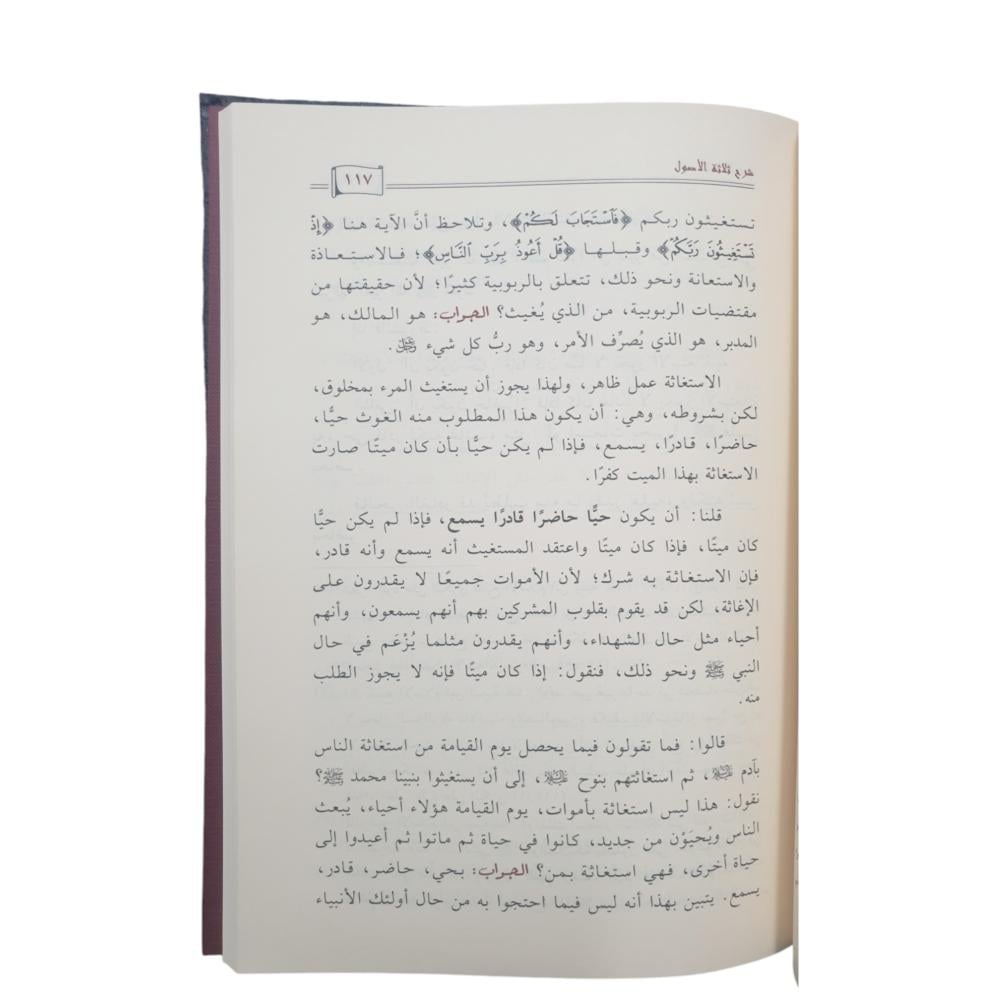 شرح ثلاثة الأصول
١١٧
تستغيثون ربكم ﴿فَٱسْتَجَابَ لَكُمْ﴾، وتلاحظ أنَّ الآية هنا ﴿إِذْ
تَسْتَغِيثُونَ رَبَّكُمْ﴾ وقبلها ﴿قُلْ أَعُوذُ بِرَبِّ ٱلنَّاسِ﴾؛ فالاستعاذة
والاستعانة ونحو ذلك، تتعلق بالربوبية كثيرًا؛ لأن حقيقتها من
مقتضيات الربوبية، من الذي يُغيث؟ الجواب: هو المالك، هو
المدبر، هو الذي يُصرِّف الأمر، وهو ربُّ كل شيء ﷻ.
الاستغاثة عمل ظاهر، ولهذا يجوز أن يستغيث المرء بمخلوق،
لكن بشروطه، وهي: أن يكون هذا المطلوب منه الغوث حيًّا،
حاضرًا، قادرًا، يسمع، فإذا لم يكن حيًّا بأن كان ميتًا صارت
الاستغاثة بهذا الميت كفرًا.
قلنا: أن يكون حيًّا حاضرًا قادرًا يسمع، فإذا لم يكن حيًّا
كان ميتًا، فإذا كان ميتًا واعتقد المستغيث أنه يسمع وأنه قادر،
فإن الاستغاثة به شرك؛ لأن الأموات جميعًا لا يقدرون على
الإغاثة، لكن قد يقوم بقلوب المشركين بهم أنهم يسمعون، وأنهم
أحياء مثل حال الشهداء، وأنهم يقدرون مثلما يُزْعَم في حال
النبي ﷺ ونحو ذلك، فنقول: إذا كان ميتًا فإنه لا يجوز الطلب
منه.
قالوا: فما تقولون فيما يحصل يوم القيامة من استغاثة الناس
بآدم ﵇، ثم استغاثتهم بنوح ﵇، إلى أن يستغيثوا بنبينا محمد ﷺ؟
نقول: هذا ليس استغاثة بأموات، يوم القيامة هؤلاء أحياء، يُبعث
الناس ويُحيَوْن من جديد، كانوا في حياة ثم ماتوا ثم أعيدوا إلى
حياة أخرى، فهي استغاثة بمن؟ الجواب: بحي، حاضر، قادر،
يسمع. يتبين بهذا أنه ليس فيما احتجوا به من حال أولئك الأنبياء